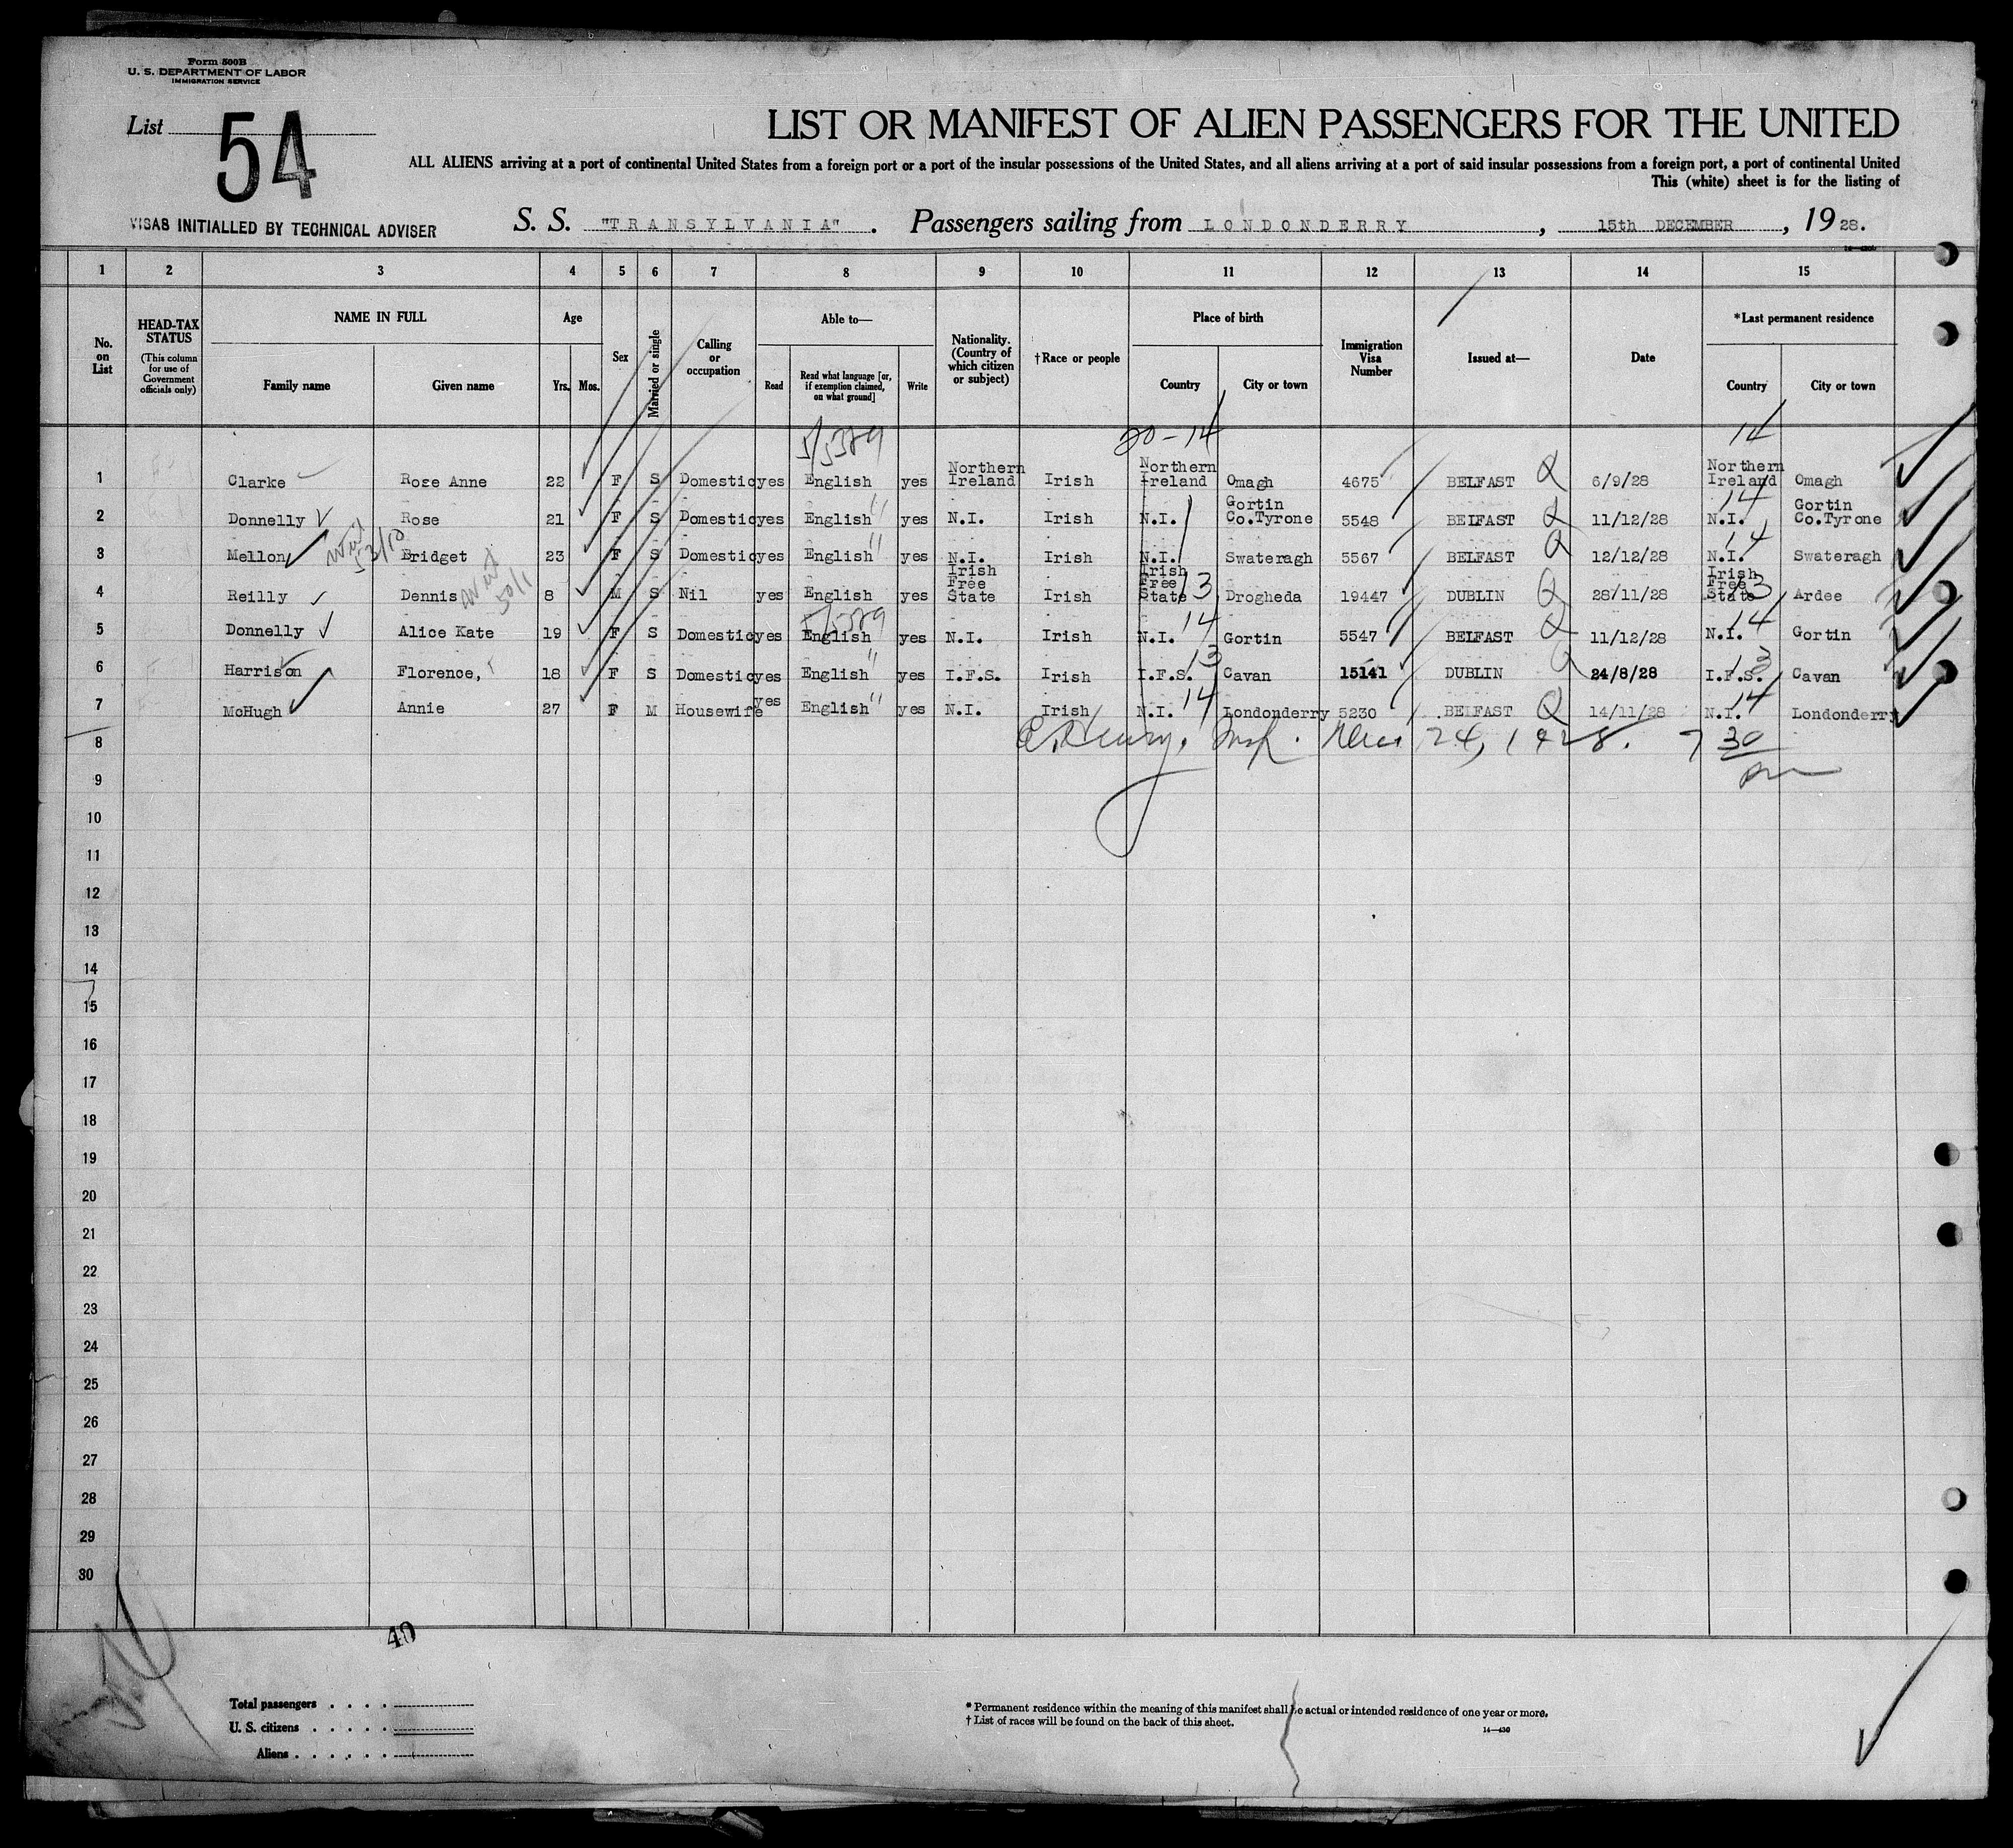 Form 500B
U. S. DEPARTMENT OF LABOR
IMMIGRATION SERVICE
List 54
LIST OR MANIFEST OF ALIEN PASSENGERS FOR THE UNITED
ALL ALIENS arriving at a port of continental United States from a foreign port or a port of the insular possessions of the United States, and all aliens arriving at a port of said insular possessions from a foreign port, a port of continental United
This (white) sheet is for the listing of
VISAS INITIALLED BY TECHNICAL ADVISER
S. S. "TRANSYLVANIA". Passengers sailing from LONDONDERRY, 15th DECEMBER, 1928.
1 2 3 4 5 6 7 8 9 10 11 12 13 14 15
No. on List
HEAD-TAX STATUS (This column for use of Government officials only)
NAME IN FULL Family name Given name
Age Yrs. Mos.
Sex
Married or single
Calling or occupation
Able to— Read Read what language [or, if exemption claimed, on what ground] Write
Nationality. (Country of which citizen or subject)
†Race or people
Place of birth Country City or town
Immigration Visa Number
Issued at—
Date
*Last permanent residence Country City or town
5/5389 20-14 14
1 Clarke Rose Anne 22 F S Domestic yes English yes Northern Ireland Irish Northern Ireland Omagh 4675 BELFAST Q 6/9/28 Northern Ireland Omagh
2 Donnelly Rose 21 F S Domestic yes English " yes N.I. Irish N.I. Gortin Co.Tyrone 5548 BELFAST Q 11/12/28 N.I. 14 Gortin Co.Tyrone
3 Mellon Bridget 23 F S Domestic yes English " yes N.I. Irish N.I. Swateragh 5567 BELFAST Q 12/12/28 N.I. 14 Swateragh
4 Reilly Dennis 8 M S Nil yes English yes Irish Free State Irish Irish Free State 13 Drogheda 19447 DUBLIN Q 28/11/28 Irish Free State 13 Ardee
5 Donnelly Alice Kate 19 F S Domestic yes English 5/5389 yes N.I. Irish N.I. 14 Gortin 5547 BELFAST Q 11/12/28 N.I. 14 Gortin
6 Harrison Florence, 18 F S Domestic yes English " yes I.F.S. Irish I.F.S. 13 Cavan 15141 DUBLIN Q 24/8/28 I.F.S. 13 Cavan
7 McHugh Annie 27 F M Housewife yes English " yes N.I. Irish N.I. 14 Londonderry 5230 BELFAST Q 14/11/28 N.I. 14 Londonderry
8 Henry, Insp. Dec 24, 1928. 7 30 pm
9
10
11
12
13
14
15
16
17
18
19
20
21
22
23
24
25
26
27
28
29
30
40
Total passengers
U. S. citizens
Aliens
* Permanent residence within the meaning of this manifest shall be actual or intended residence of one year or more.
† List of races will be found on the back of this sheet.
14—430